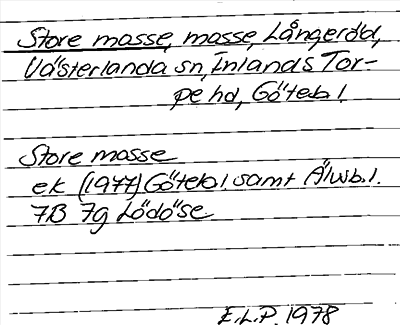 Store mosse, mosse, Långeröd,
Västerlanda sn, Inlands Tor-
pe hd, Göteb. l.
Store mosse
ek (1977) Göteb l. samt Älvsb. l.
7B 7g Lödöse
E.L.P. 1978